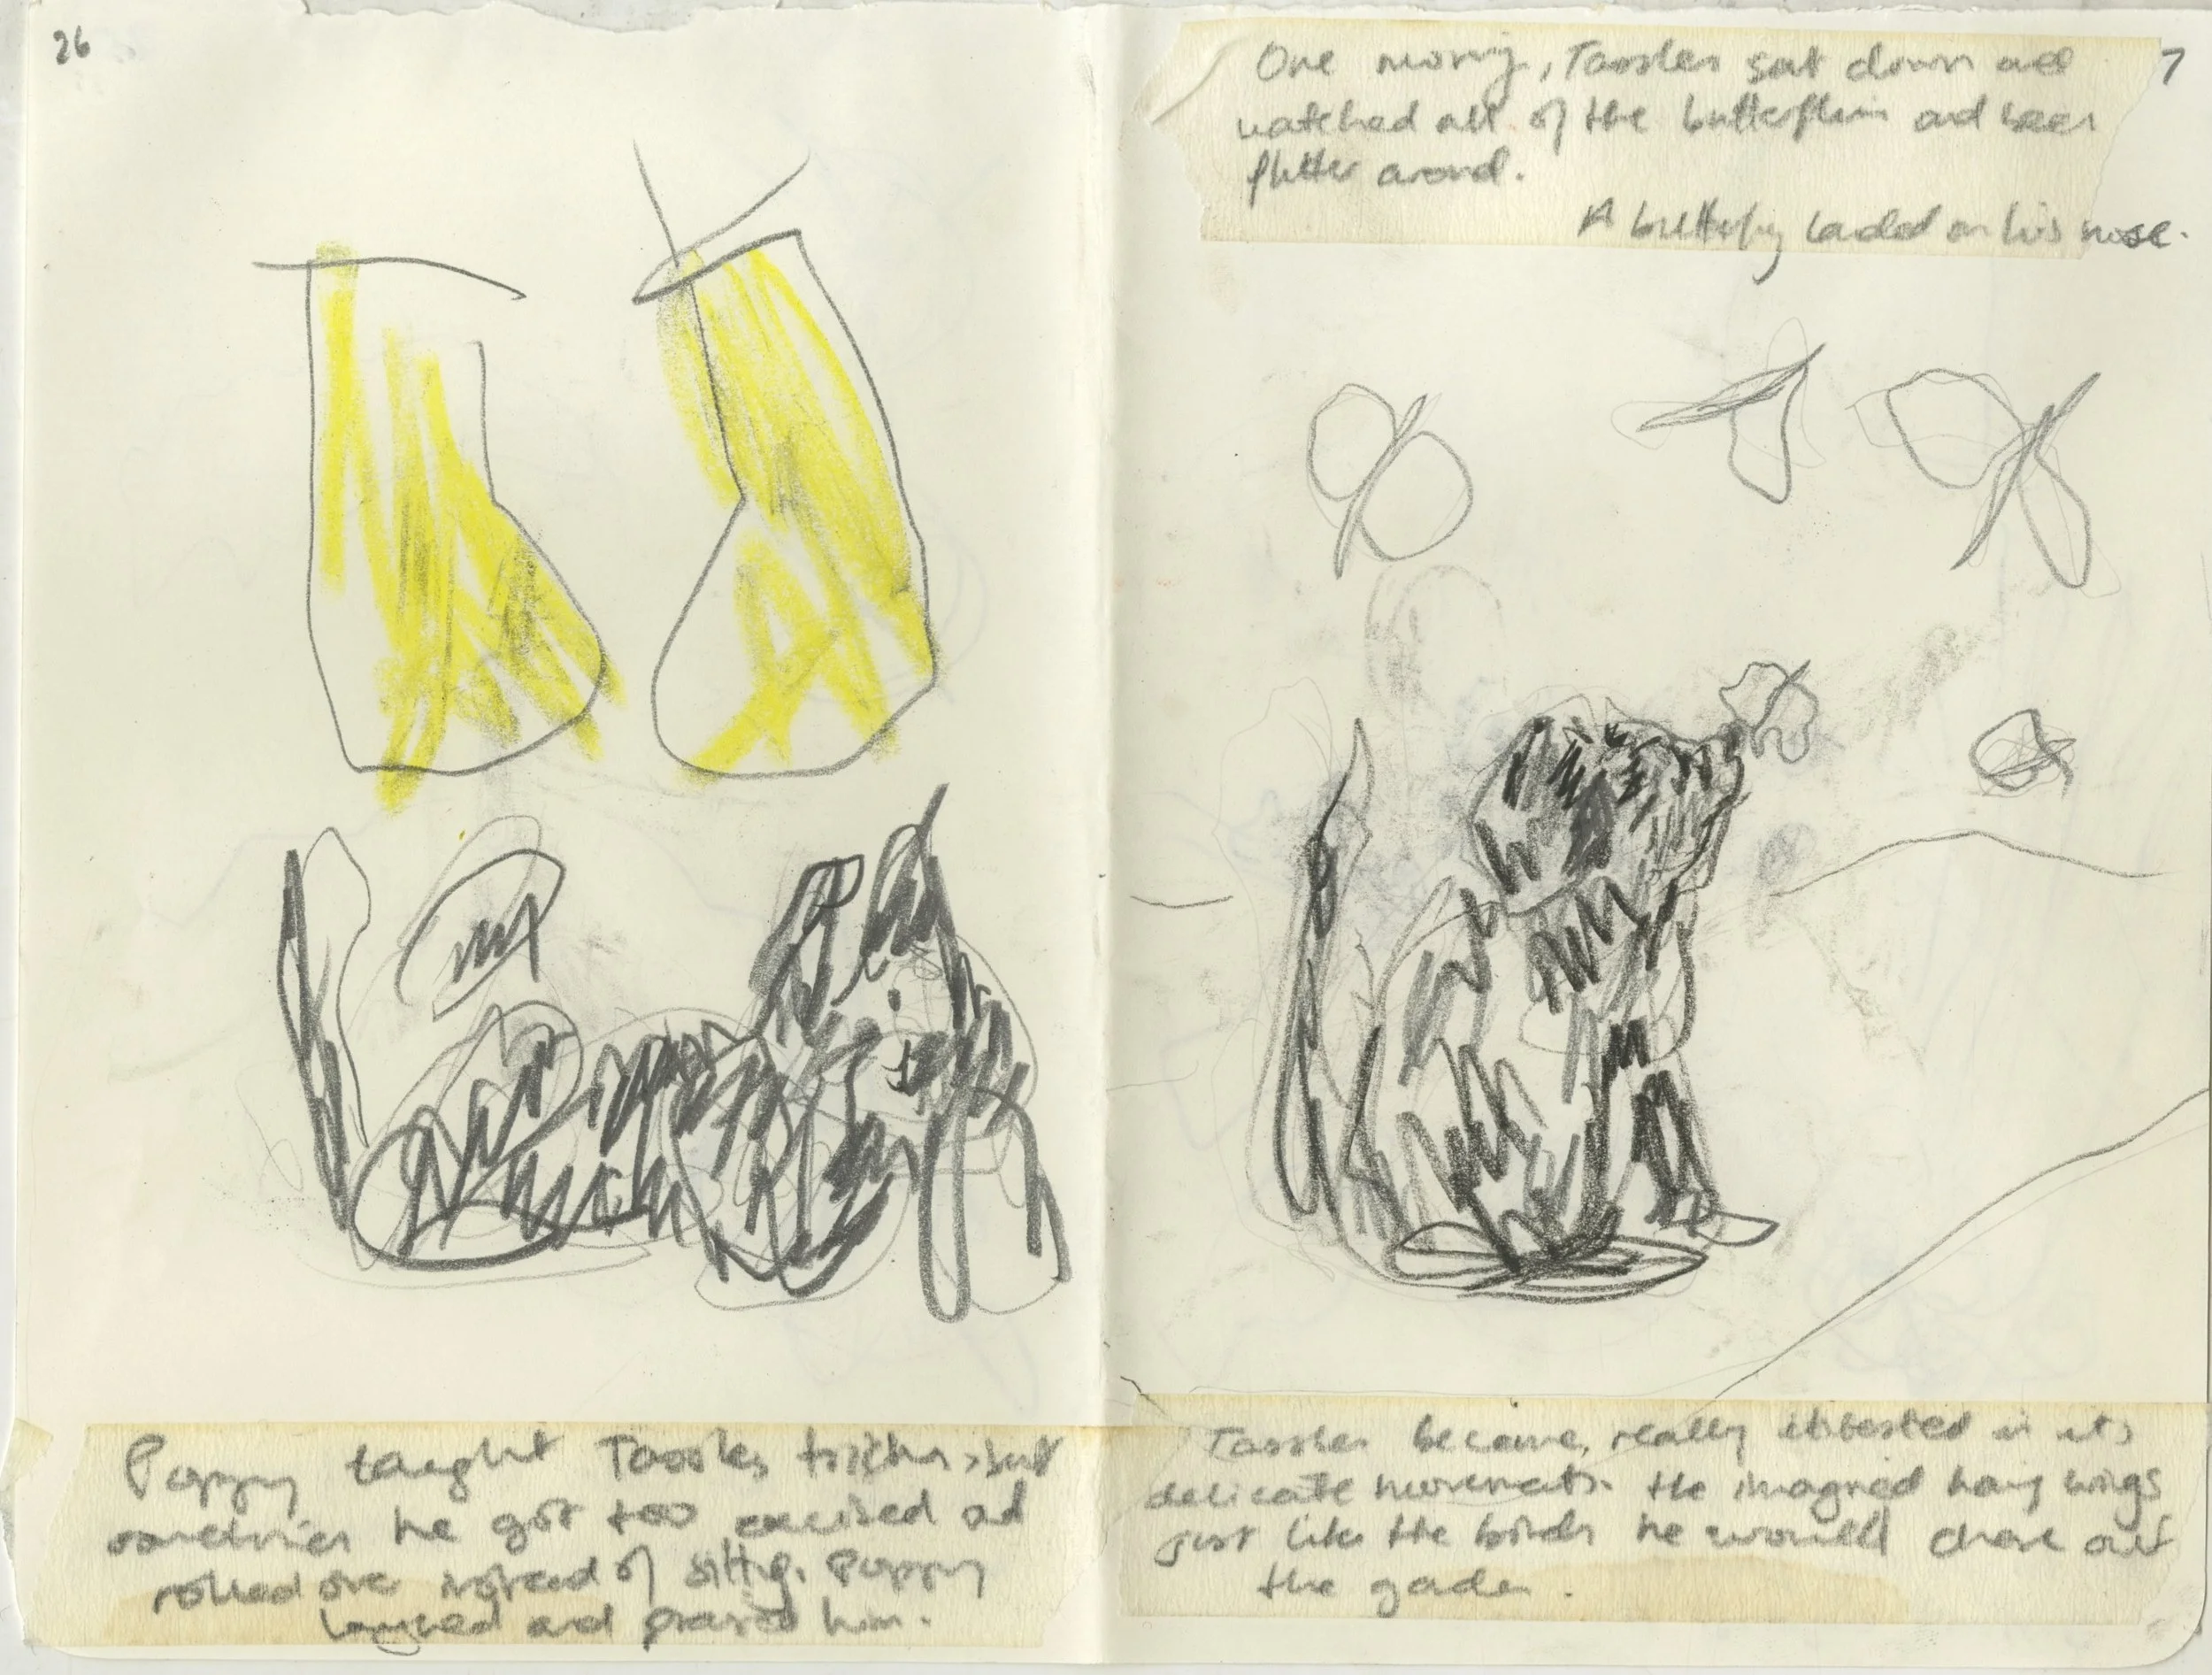 26
Poppy taught Tassles tricks, but
sometimes he got too excited and
rolled over instead of sitting. Poppy
laughed and praised him.
7
One morning, Tassles sat down and
watched all of the butterflies and bees
flutter around.
A butterfly landed on his nose.
Tassles became really interested in its
delicate movements. He imagined having wings
just like the birds he would chase out
the garden.